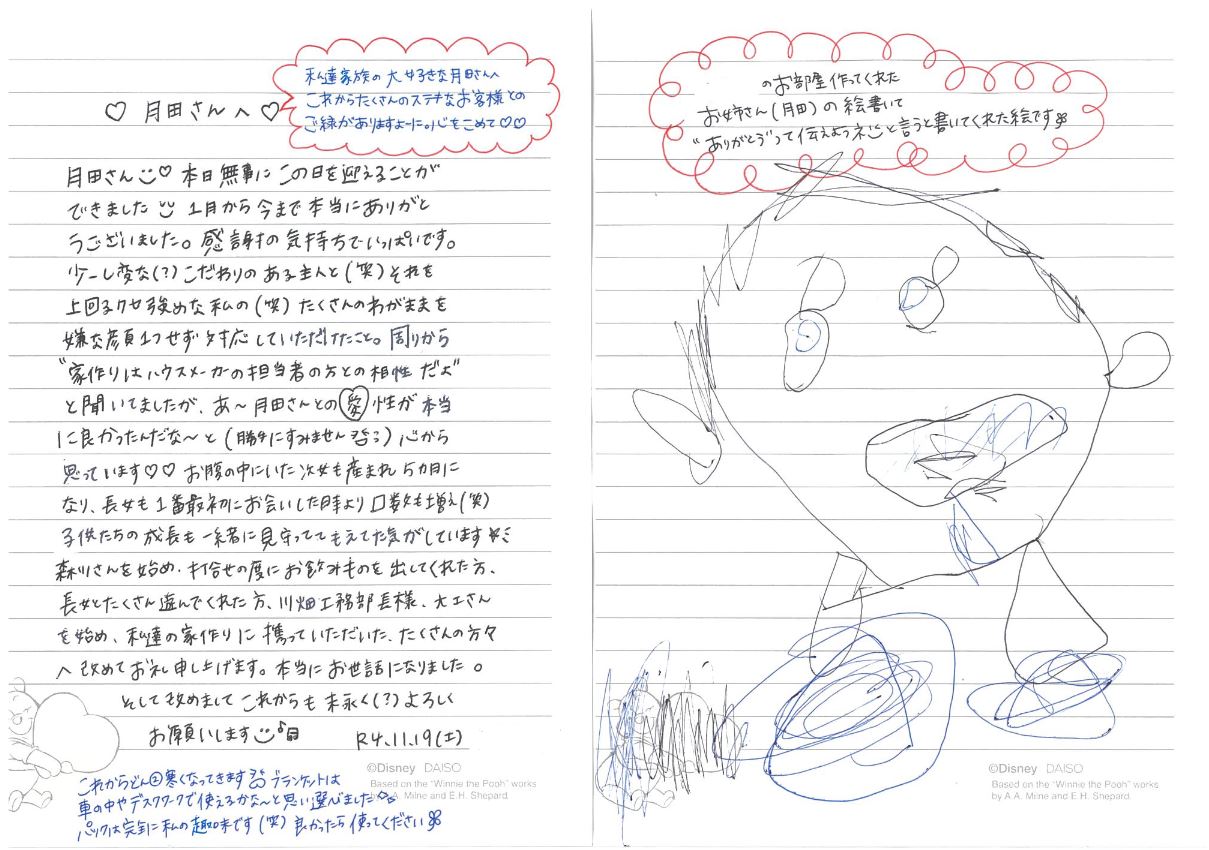 ♡ 月田さんへ ♡
私達家族の大好きな月田さんへ
これからたくさんのステキなお客様との
ご縁がありますよーに。心をこめて♡♡
月田さん♡ 本日無事にこの日を迎えることが
できました 1月から今まで本当にありがと
うございました。感謝の気持ちでいっぱいです。
少ーし変な(?)こだわりのある主人と(笑)それを
上回るクセ強めな私の(笑)たくさんのわがままを
嫌な顔1つせず対応していただけたこと。周りから
"家作りはハウスメーカーの担当者の方との相性だよ"
と聞いてましたが、あ〜月田さんとの愛性が本当
に良かったんだな〜と(勝手にすみません)心から
思っています♡♡ お腹の中にいた次女も産まれ5カ月に
なり、長女も1番最初にお会いした時より口数も増え(笑)
子供たちの成長も一緒に見守っててもらえてた気がしています
森川さんを始め、打合せの度にお飲みものを出してくれた方、
長女とたくさん遊んでくれた方、川畑工務部長様、大工さん
を始め、私達の家作りに携っていただいた、たくさんの方々
へ改めてお礼申し上げます。本当にお世話になりました。
そして改めまして これからも末永く(?)よろしく
お願いします♪
R4.11.19(土)
これからどん②寒くなってきます ブランケットは
車の中やデスクワークで使えるかな〜と思い選びました
パックは完全に私の趣味です(笑)良かったら使ってください
©Disney DAISO
Based on the "Winnie the Pooh" works
by A.A. Milne and E.H. Shepard.
のお部屋作ってくれた
お姉さん(月田)の絵書いて
"ありがとう"って伝えようネと言うと書いてくれた絵です
©Disney DAISO
Based on the "Winnie the Pooh" works
by A.A. Milne and E.H. Shepard.